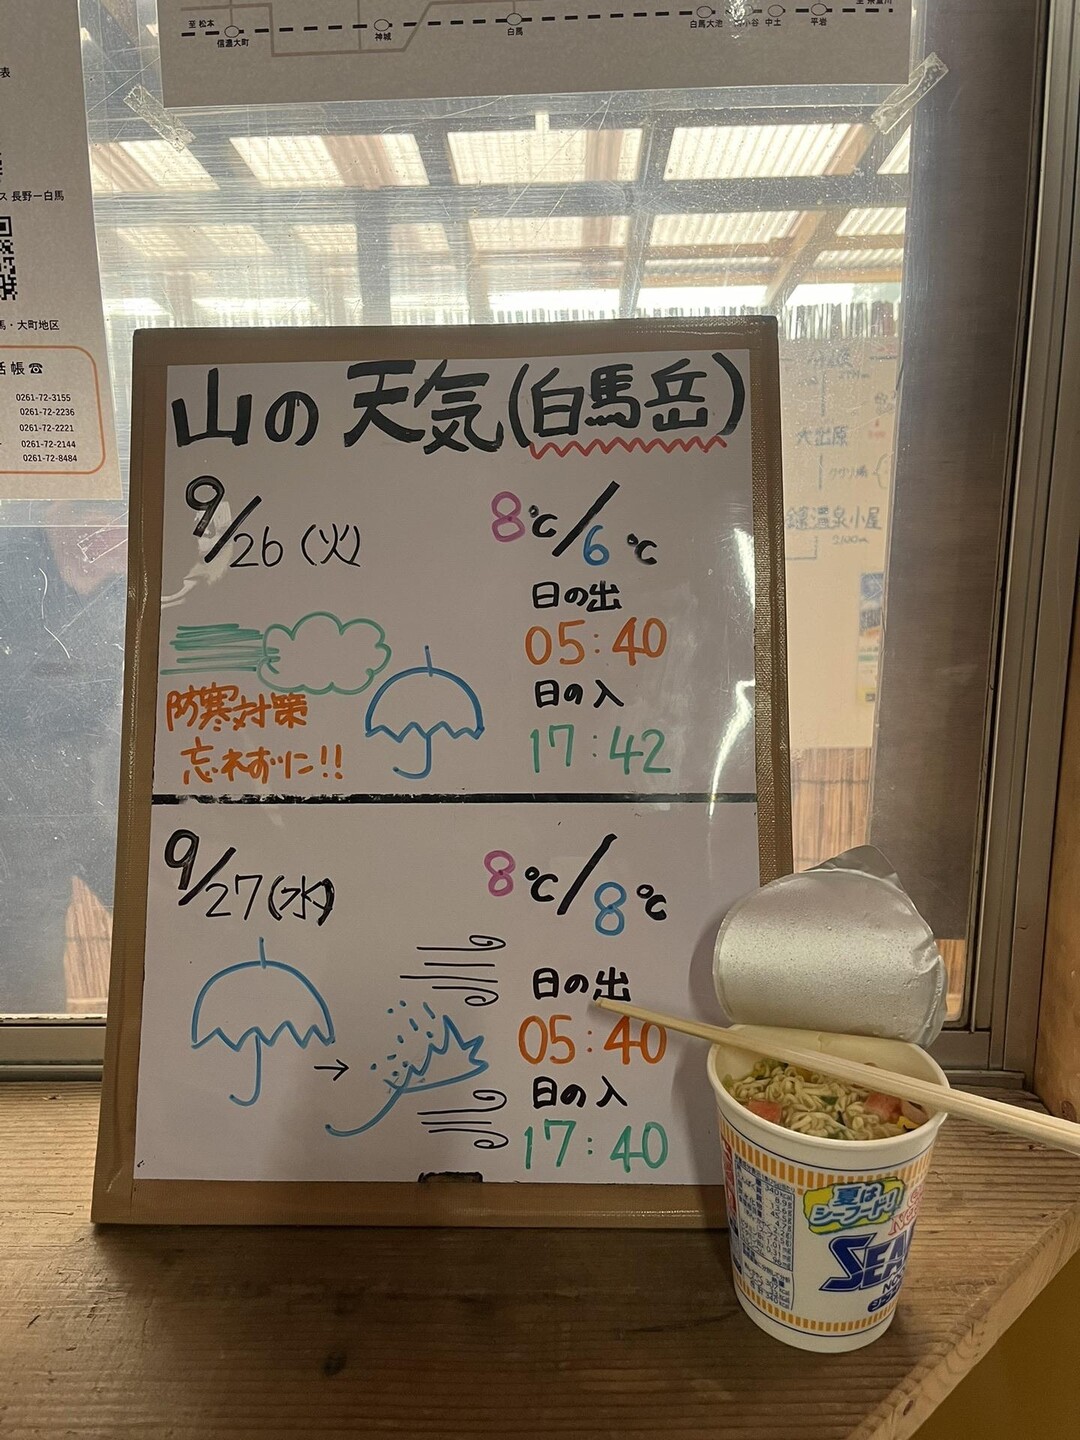 至 松本
信濃大町
神城
白馬
白馬大池
中土
平岩
表
ス 長野ー白馬
馬・大町地区
話帳☎
0261-72-3155
0261-72-2236
0261-72-2221
0261-72-2144
0261-72-8484
山の天気(白馬岳)
9/26(火)
8℃/6℃
日の出
05:40
日の入
17:42
防寒対策
忘れずに!!
9/27(水)
8℃/8℃
日の出
05:40
日の入
17:40
大出原
鑓温泉小屋
夏は
シーフード!